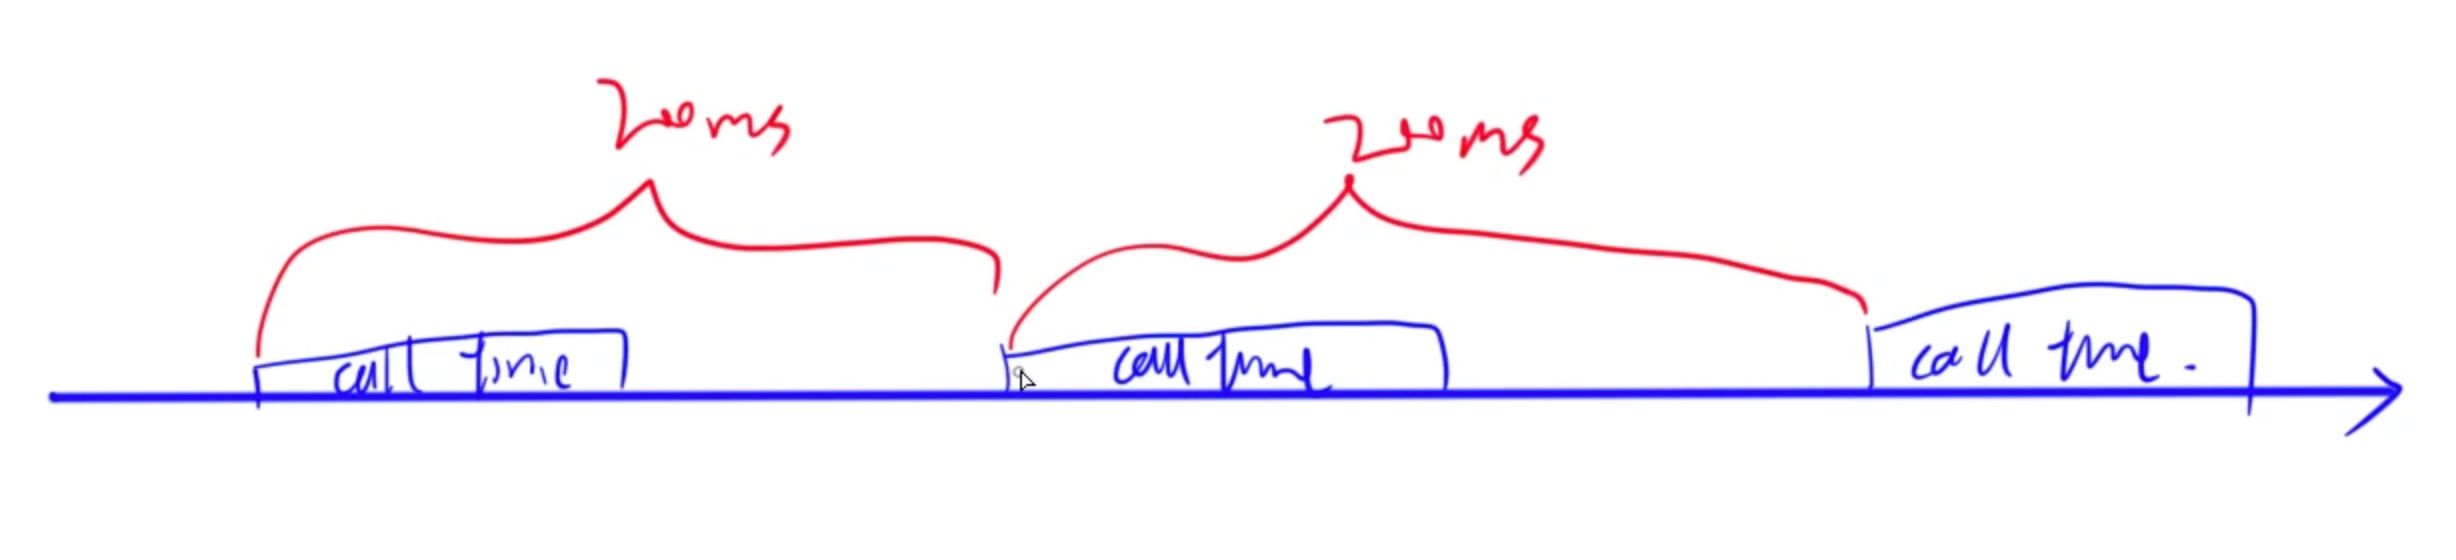 200ms
200ms
call time
call time
call time.